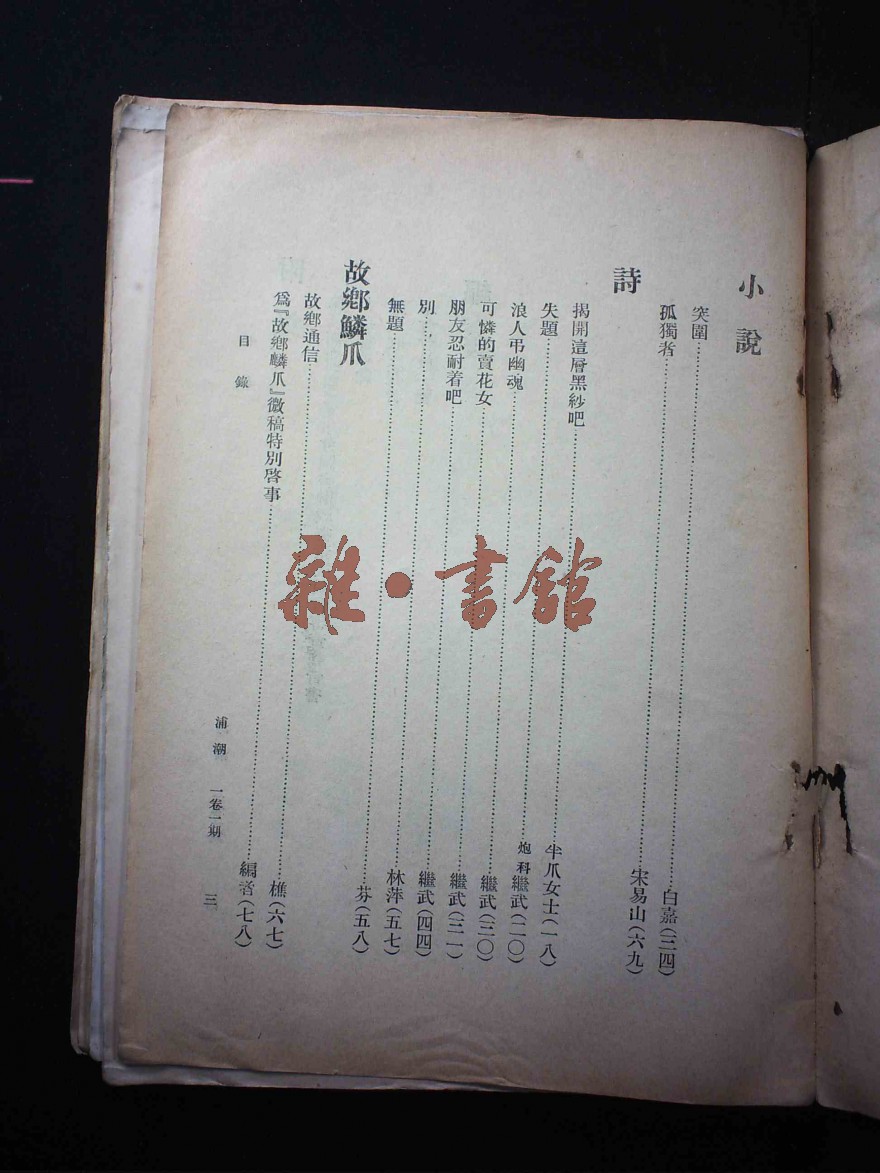 小說
突圍……白嘉(三四)
孤獨者……宋易山(六九)
詩
揭開這層黑紗吧……半爪女士(一八)
失題……炮科繼武(二〇)
浪人弔幽魂……繼武(三〇)
可憐的賣花女……繼武(三一)
朋友忍耐着吧……繼武(四四)
別……林萍(五七)
無題……芬(五八)
故鄉鱗爪
故鄉通信……樵(六七)
爲『故鄉鱗爪』徵稿特別啓事……編者(七八)
目錄
浦潮 一卷一期 三
雜·書館